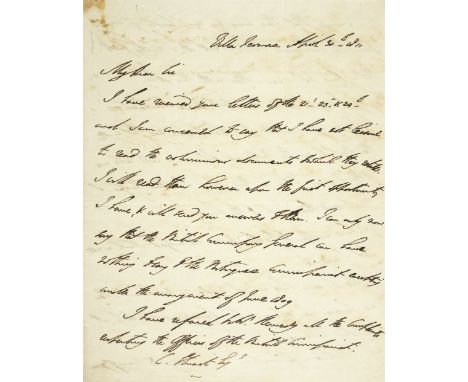 Villa Formosa April 30th 1811
My dear Sir
I have received your letters of the 21st 23d & 24th
and I am concerned to say that I have not leisure
to read the voluminous documents to which they relate.
I will read them however upon the first opportunity
I have, & will send you answers to them. I can only now
say that the British Commissary General can have
nothing to say to the Portuguese Commissariat excepting
under the arrangement of June 1809
I have referred to Mr. Kennedy all the complaints
respecting the Officers of the British Commissariat.
C. Stuart Esqr